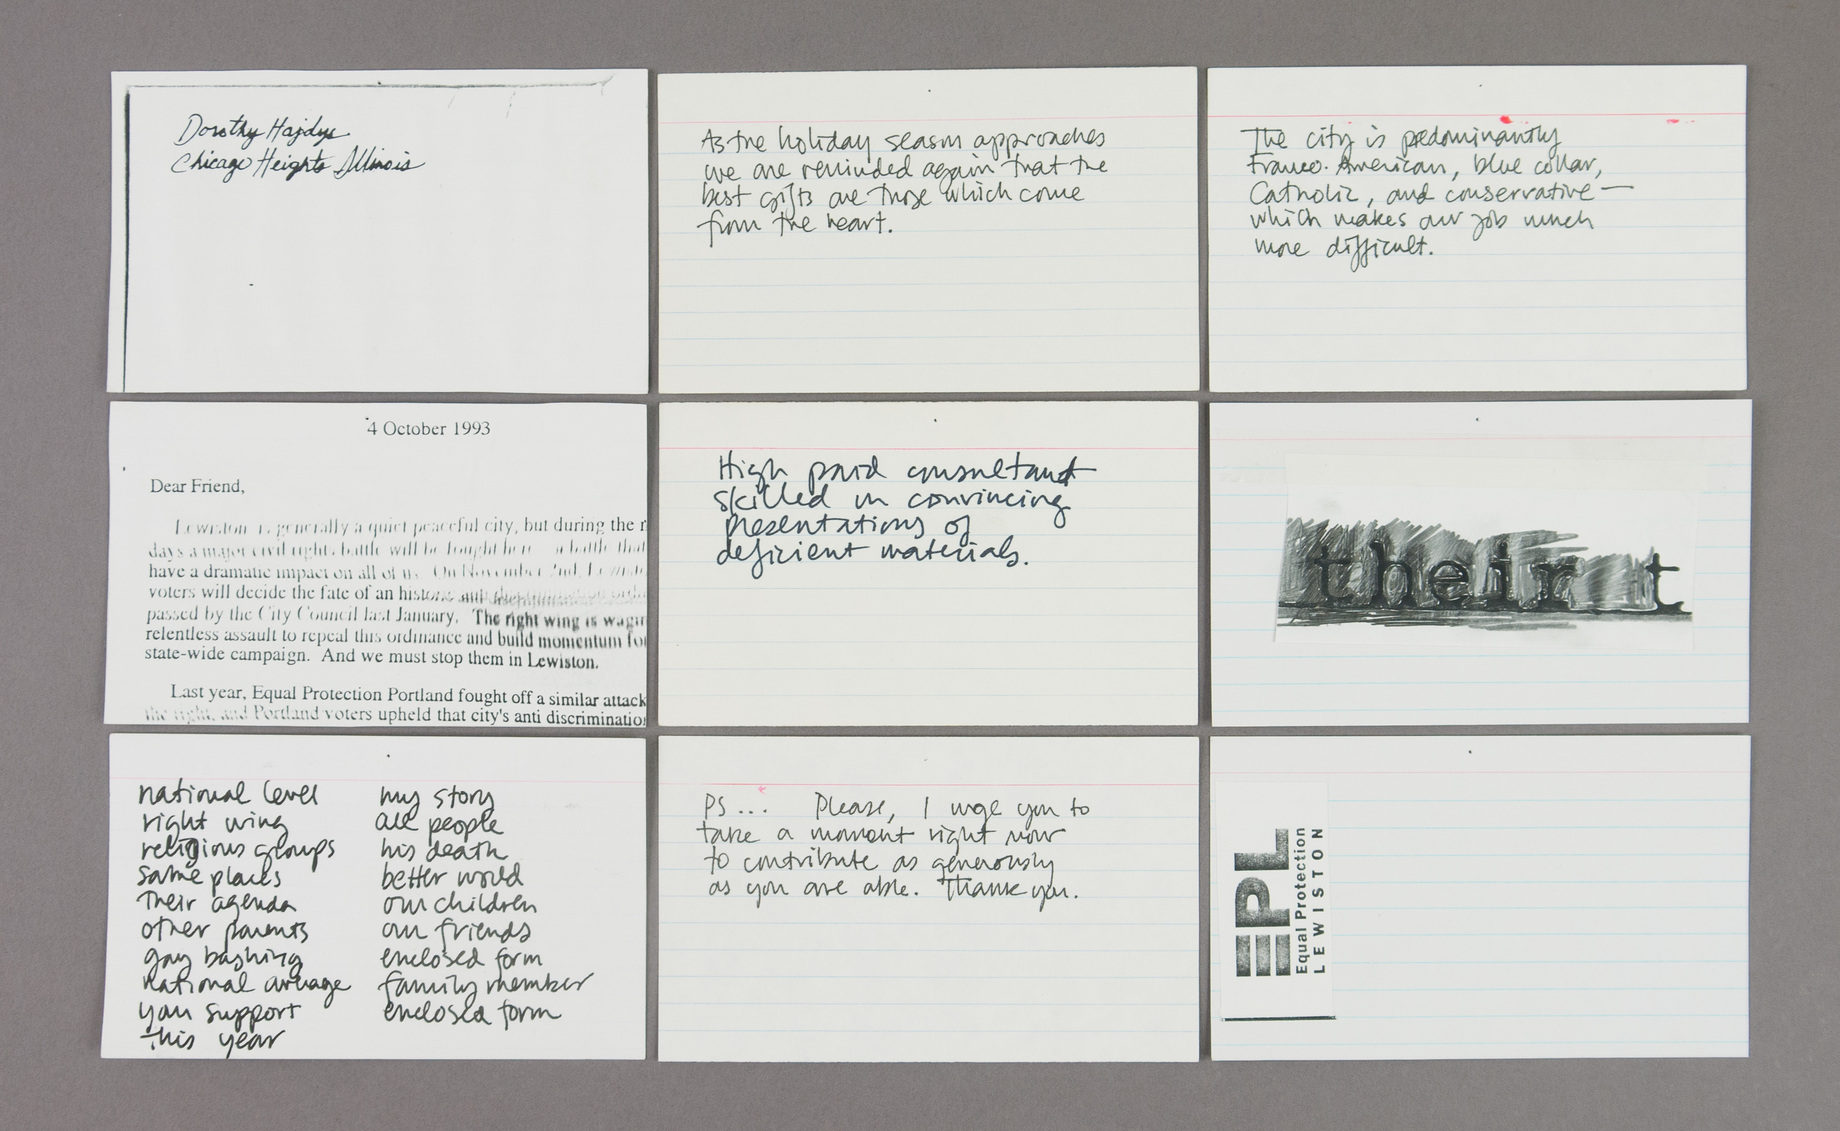 Dorothy Hajdys
Chicago Heights Illinois
As the holiday season approaches
we are reminded again that the
best gifts are those which come
from the heart.
The city is predominantly
Franco-American, blue collar,
Catholic, and conservative —
which makes our job much
more difficult.
4 October 1993
Dear Friend,
Lewiston is generally a quiet peaceful city, but during the
days a major civil rights battle will be fought here a battle that
have a dramatic impact on all of us. On November 2nd,
voters will decide the fate of an historic anti discrimination
passed by the City Council last January. The right wing is
relentless assault to repeal this ordinance and build momentum
state-wide campaign. And we must stop them in Lewiston.
Last year, Equal Protection Portland fought off a similar attack
the right, and Portland voters upheld that city's anti discriminatio
High paid consultant
skilled in convincing
presentations of
deficient materials.
their t
national level
right wing
religious groups
same places
their agenda
other parents
gay bashing
national average
you support
this year
my story
all people
his death
better world
our children
our friends
enclosed form
family member
enclosed form
PS... Please, I urge you to
take a moment right now
to contribute as generously
as you are able. Thank you.
EPL
Equal Protection
LEWISTON